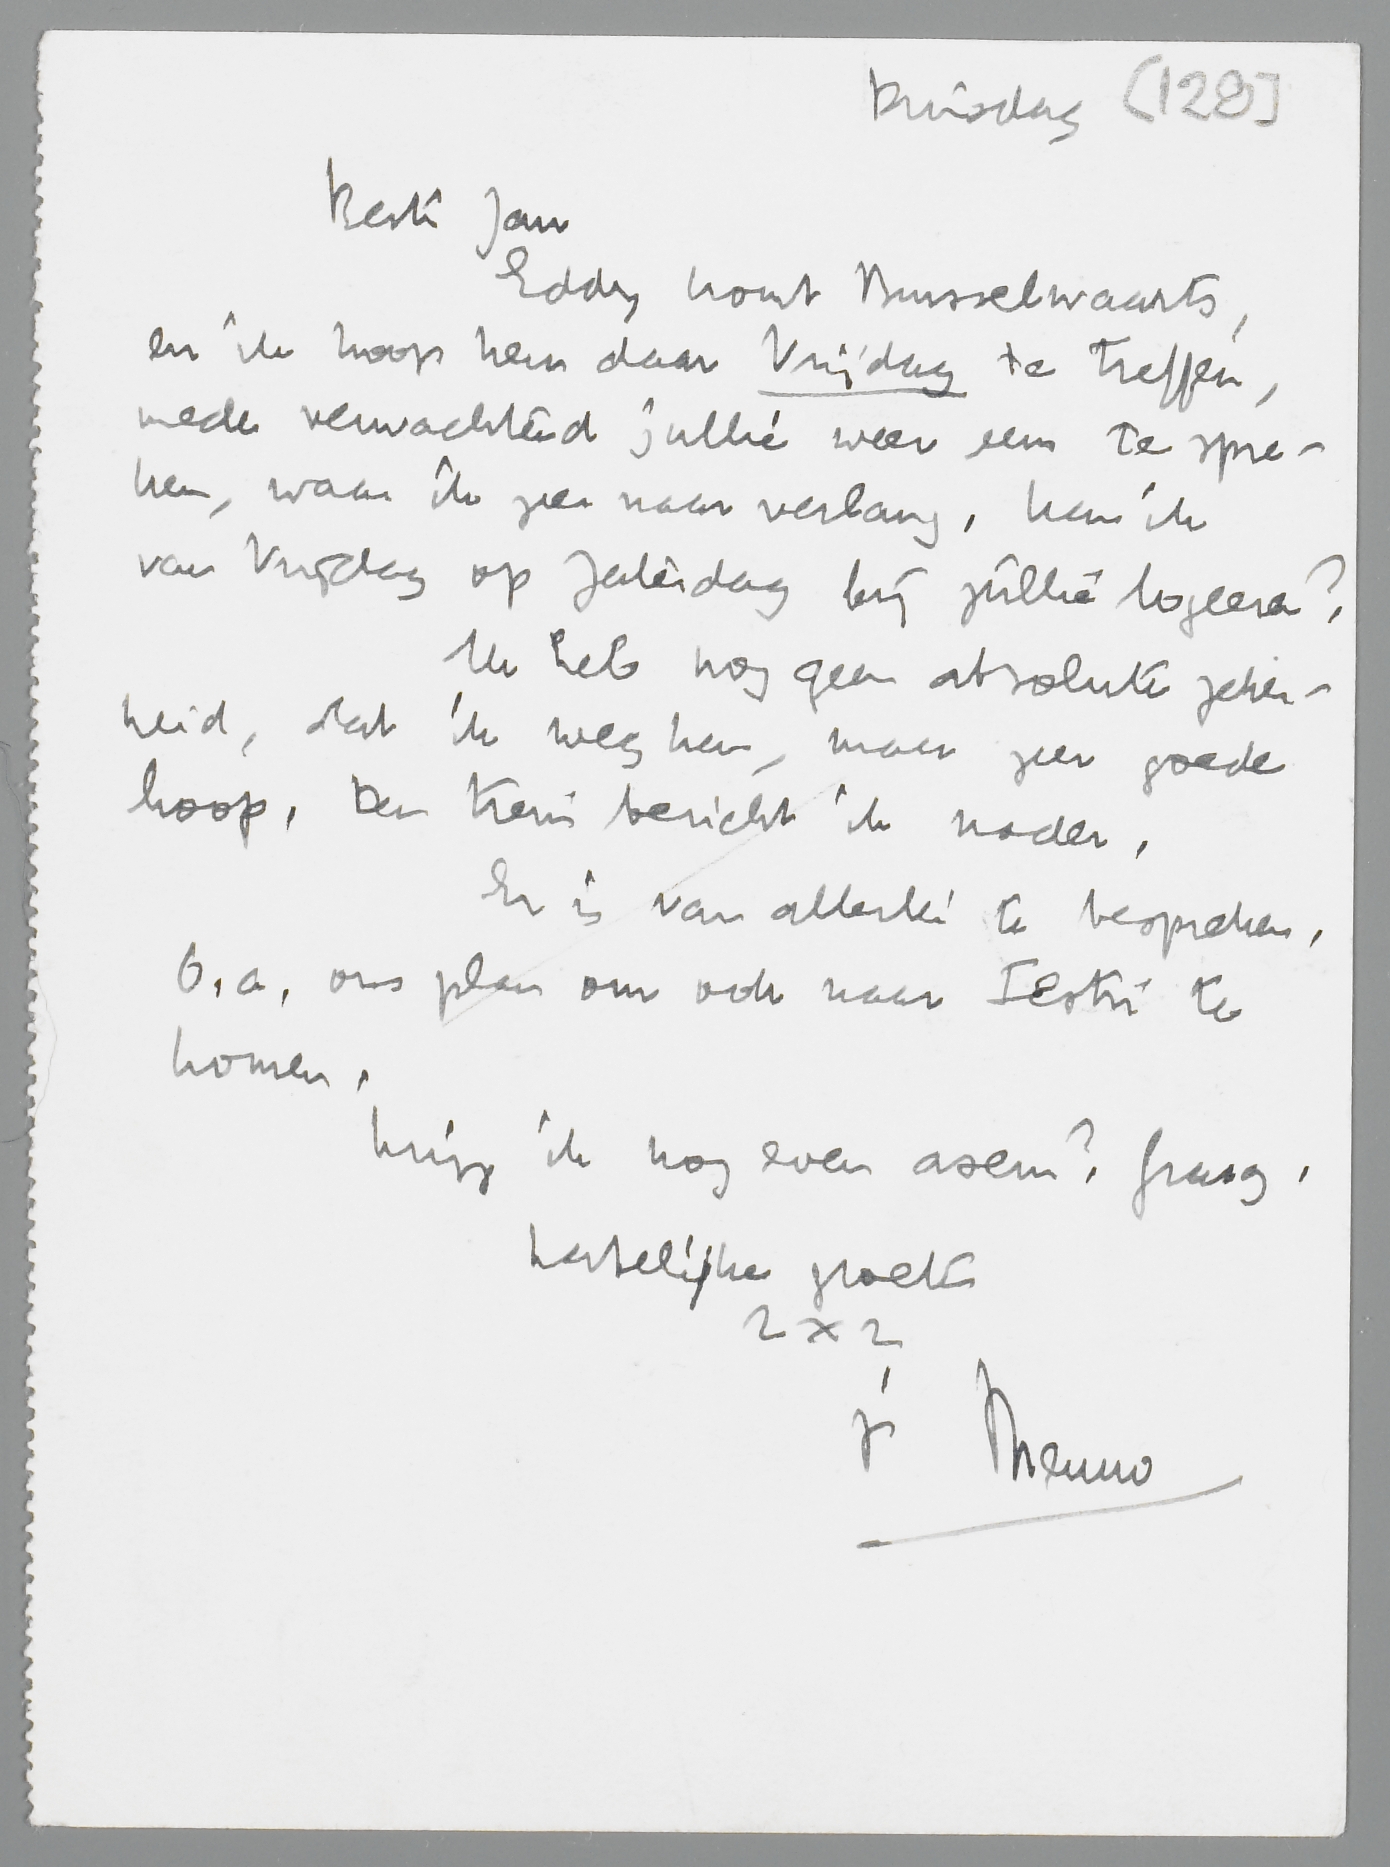 Dinsdag [128]
Beste Jan
Eddy komt Brusselwaarts,
en ik hoop hem daar Vrijdag te treffen,
mede verwachtend jullie weer eens te spre-
ken, waar ik zeer naar verlang. Kan ik
van Vrijdag op Zaterdag bij jullie logeeren?
Ik heb nog geen absolute zeker-
heid, dat ik weg kan, maar zeer goede
hoop. Den trein bericht ik nader.
Er is van allerlei te bespreken,
o.a. ons plan om ook naar Sestri te
komen.
Krijg ik nog even asem? Graag.
Hartelijke groeten
2 x 2
je Menno